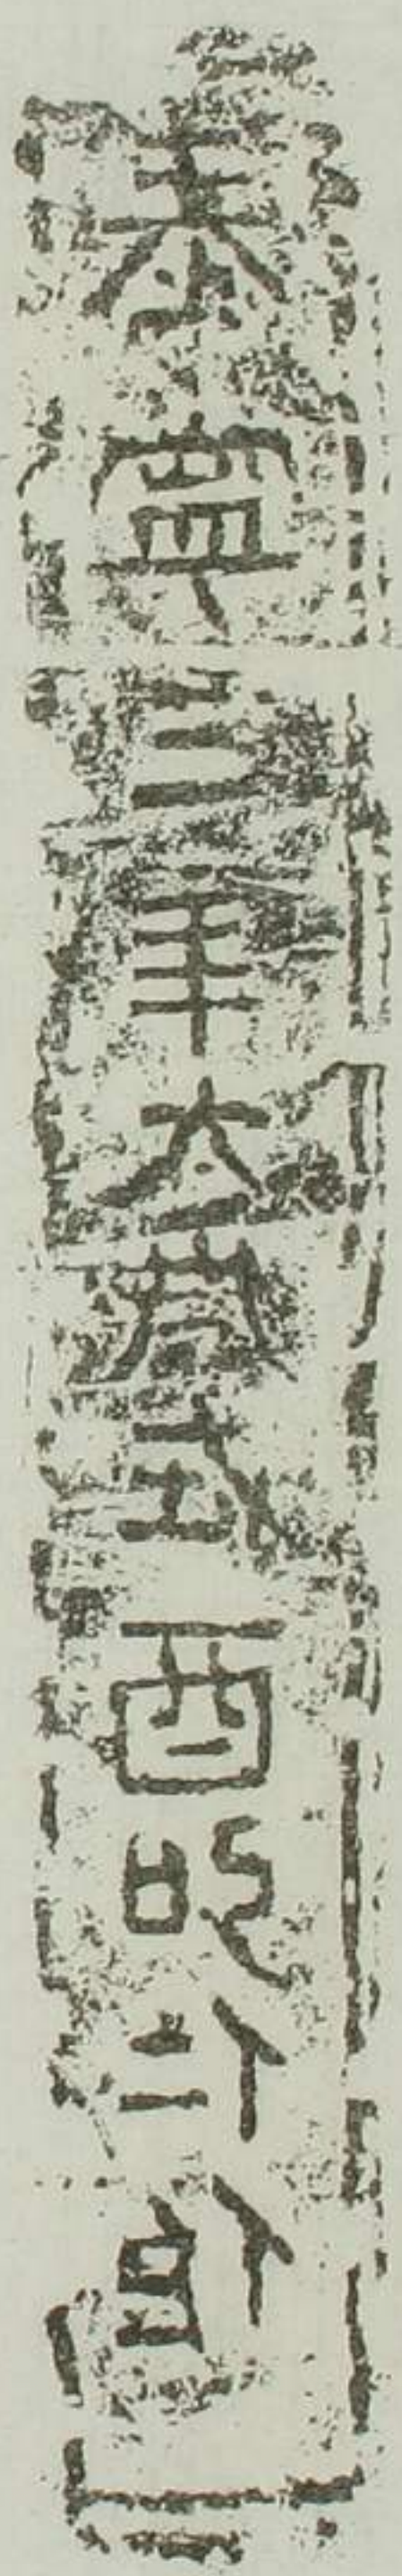 泰寧三年太歲在酉仁